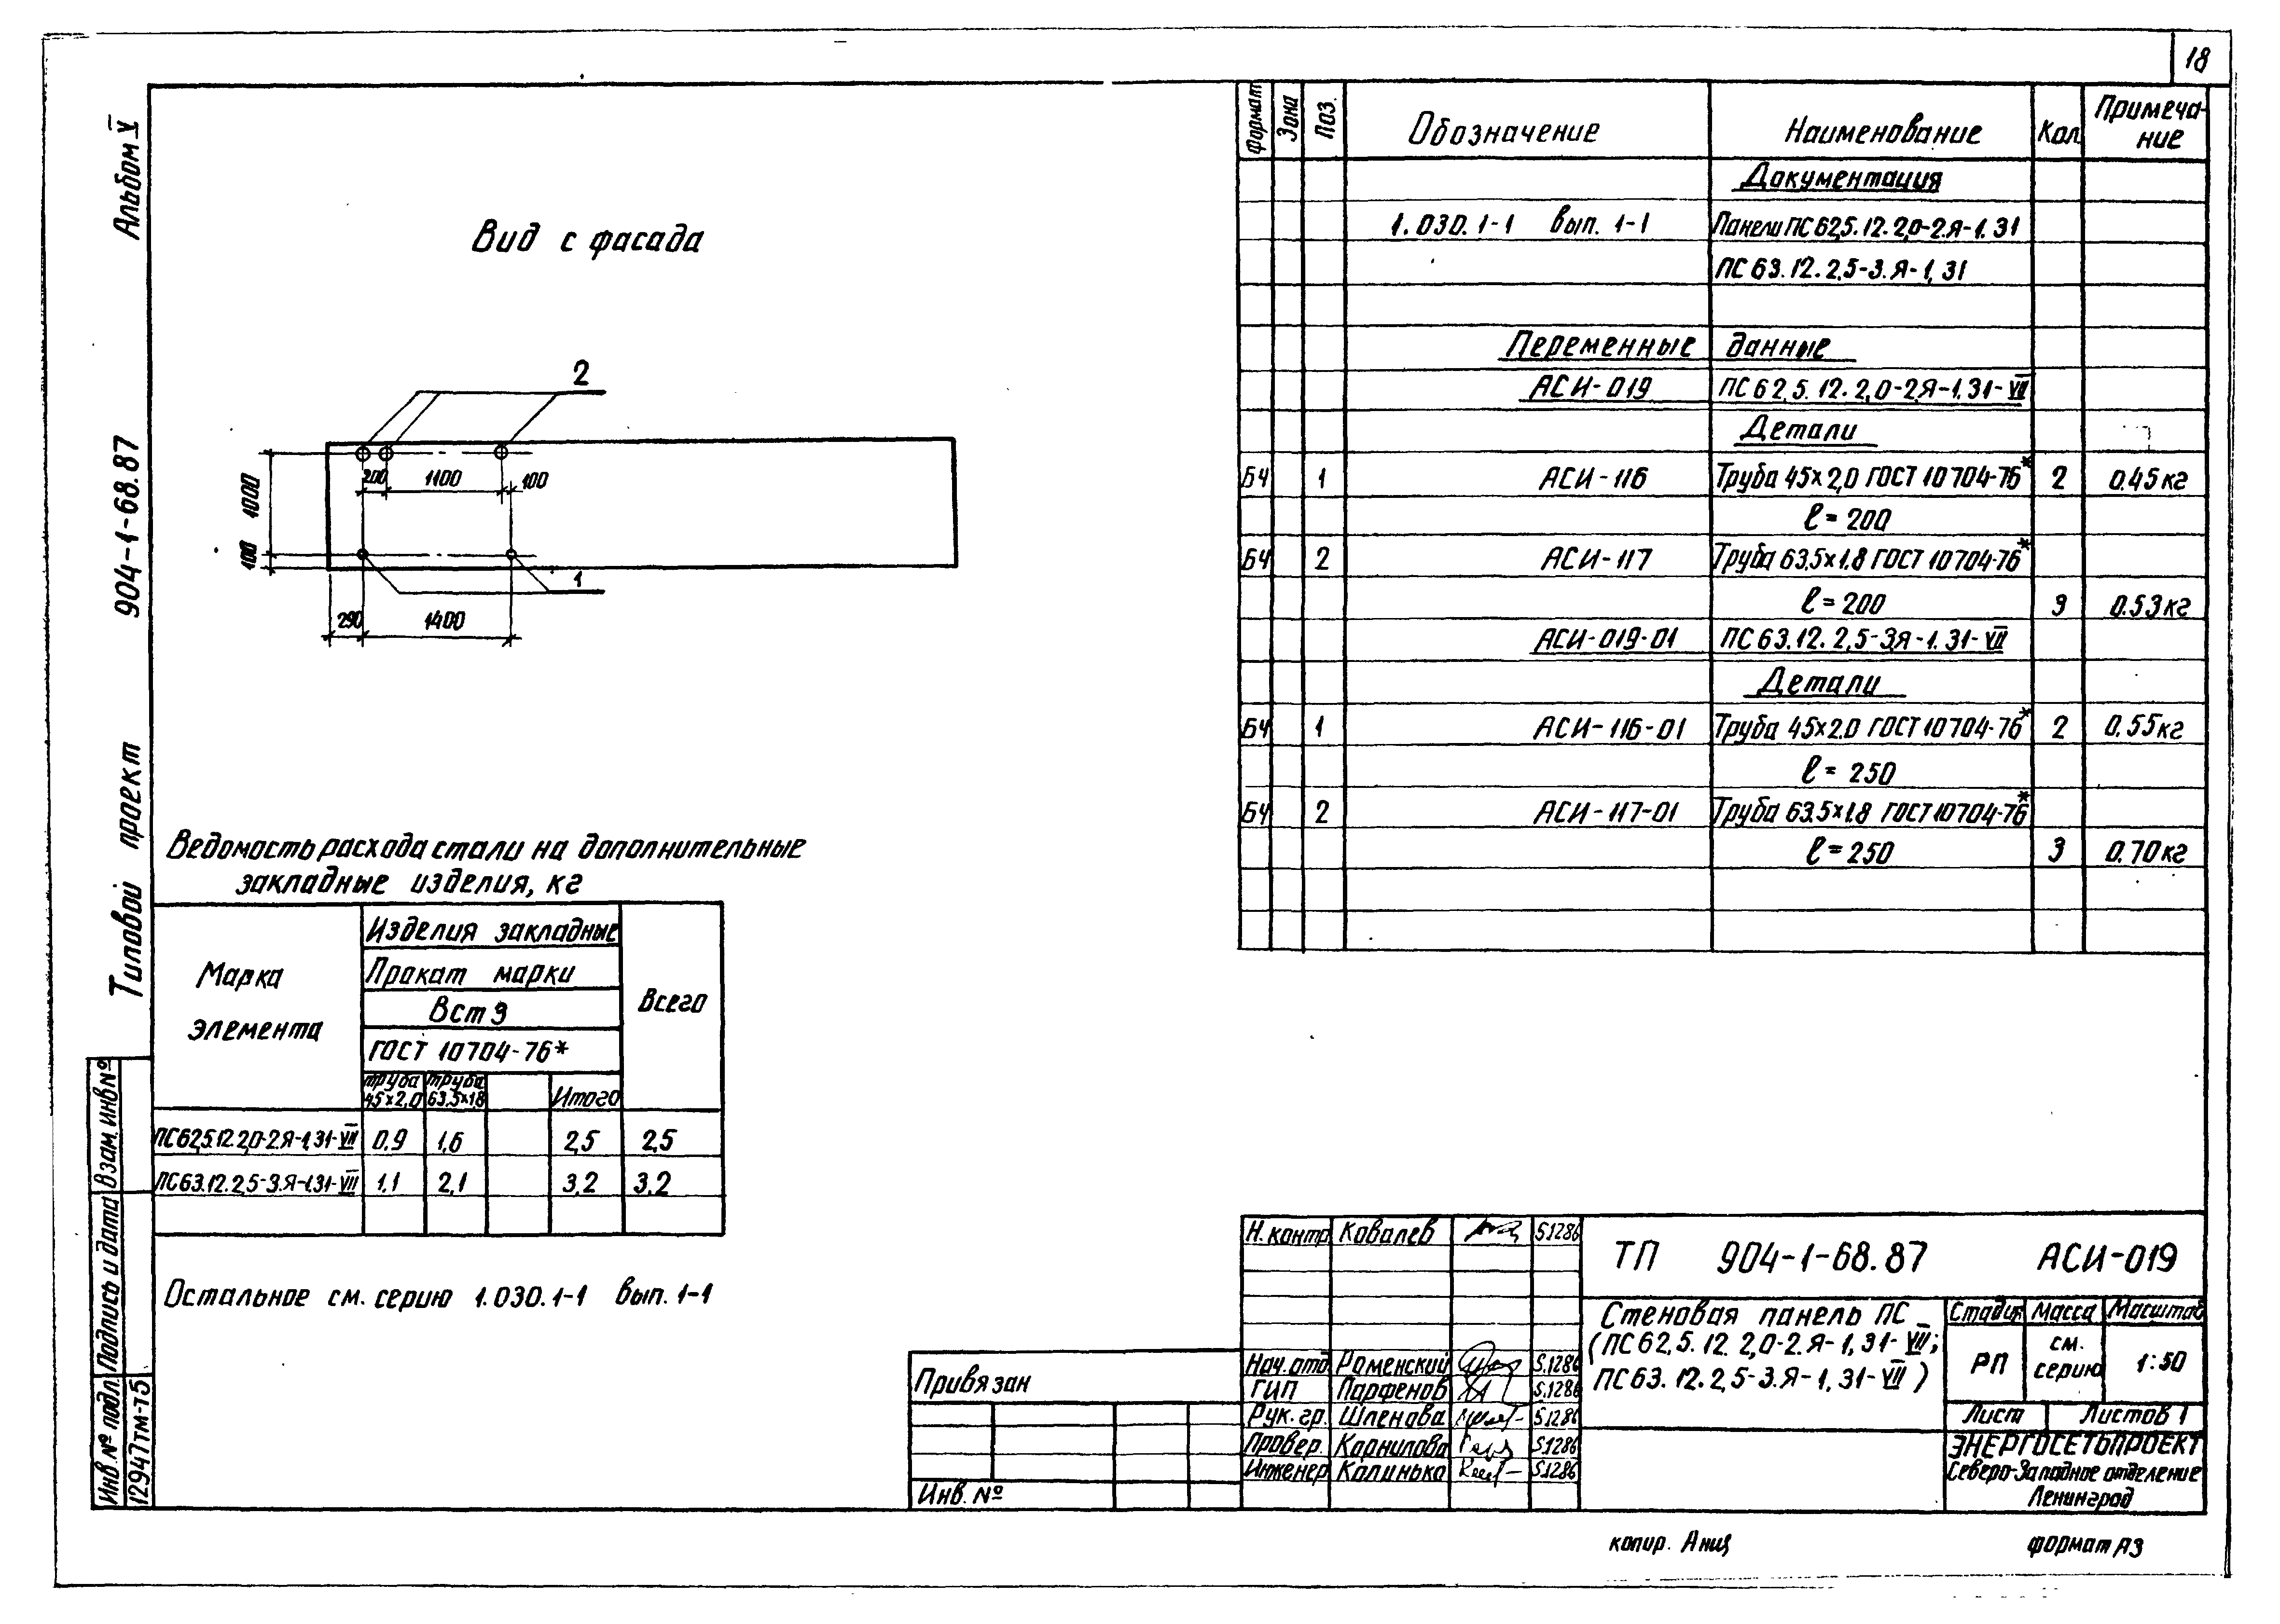 18
Альбом V
904-1-68.87
Типовой проект
Взам. инв №
Подпись и дата
Инв. № подл.
12947тм-т5
Вид с фасада
2
200
1100
100
1000
100
1
290
1400
Ведомость расхода стали на дополнительные
закладные изделия, кг
Марка
элемента
Изделия закладные
Прокат марки
Вст 3
ГОСТ 10704-76*
труба
45×2,0
труба
63.5×1,8
Итого
Всего
ПС62,5.12.2,0-2.Я-1,31-VII 0.9 1,6 2,5 2,5
ПС63.12.2,5-3.Я-1.31-VII 1,1 2,1 3,2 3,2
Остальное см. серию 1.030.1-1 вып. 1-1
Формат Зона Поз. Обозначение Наименование Кол. Примеча-
ние
Документация
1.030.1-1 вып. 1-1 Панели ПС 62,5.12.2,0-2.Я-1.31
ПС 63.12.2,5-3.Я-1,31
Переменные данные
АСИ-019 ПС 62,5.12.2,0-2Я-1.31-VII
Детали
БЧ 1 АСИ-116 Труба 45×2,0 ГОСТ 10704-76* 2 0.45кг
ℓ=200
БЧ 2 АСИ-117 Труба 63,5×1.8 ГОСТ 10704-76*
ℓ=200 3 0.53кг
АСИ-019-01 ПС 63.12.2,5-3Я-1.31-VII
Детали
БЧ 1 АСИ-116-01 Труба 45×2.0 ГОСТ 10704-76* 2 0.55кг
ℓ=250
БЧ 2 АСИ-117-01 Труба 63.5×1.8 ГОСТ 10704-76*
ℓ=250 3 0.70кг
Н. контр. Ковалев 5.1286
Нач. отд Раменский 5.1286
ГИП Парфенов 5.1286
Рук. гр. Шленова 5.1286
Провер. Корнилова 5.1286
Инженер Калинько 5.1286
ТП 904-1-68.87 АСИ-019
Стеновая панель ПС
(ПС62,5.12.2,0-2.Я-1,31-VII;
ПС63.12.2,5-3.Я-1,31-VII)
Стадия Масса Масштаб
РП см.
серию 1:50
Лист Листов 1
ЭНЕРГОСЕТЬПРОЕКТ
Северо-Западное отделение
Ленинград
Привязан
Инв. №
копир.
формат А3